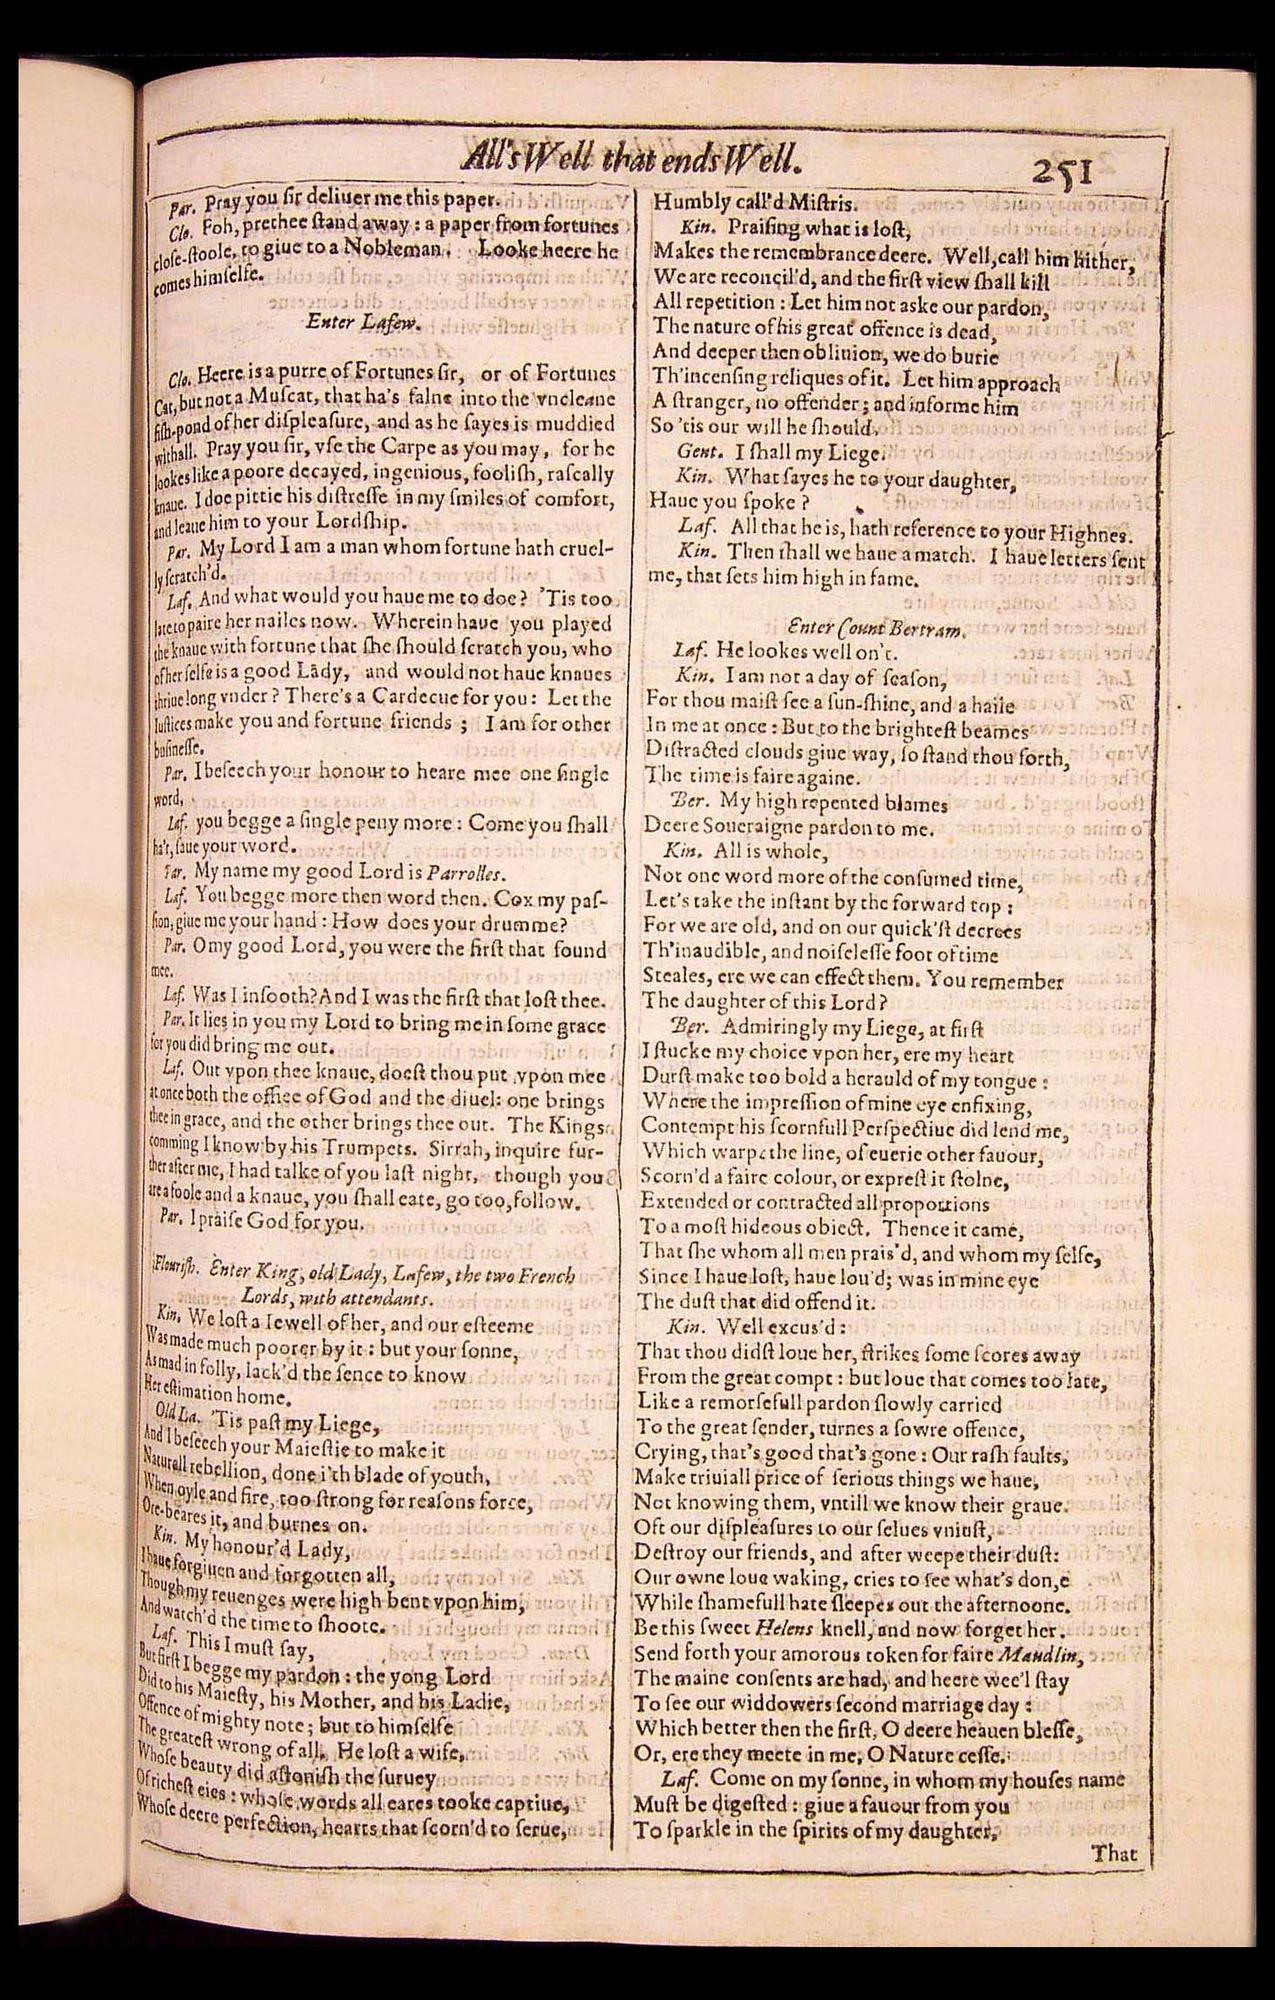 All's Well that ends Well.
251
Par. Pray you sir deliuer me this paper.
Clo. Foh, prethee stand away: a paper from fortunes
close-stoole, to giue to a Nobleman. Looke heere he
comes himselfe.
Enter Lafew.
Clo. Heere is a purre of Fortunes sir, or of Fortunes
Cat, but not a Muscat, that ha's falne into the vncleane
fish-pond of her displeasure, and as he sayes is muddied
withall. Pray you sir, vse the Carpe as you may, for he
lookes like a poore decayed, ingenious, foolish, rascally
knaue. I doe pittie his distresse in my smiles of comfort,
and leaue him to your Lordship.
Par. My Lord I am a man whom fortune hath cruel-
ly scratch'd.
Laf. And what would you haue me to doe? 'Tis too
late to paire her nailes now. Wherein haue you played
the knaue with fortune that she should scratch you, who
of her selfe is a good Lady, and would not haue knaues
thriue long vnder? There's a Cardecue for you: Let the
Iustices make you and fortune friends; I am for other
businesse.
Par. I beseech your honour to heare mee one single
word,
Laf. you begge a single peny more: Come you shall
ha't, saue your word.
Par. My name my good Lord is Parrolles.
Laf. You begge more then word then. Cox my pas-
sion, giue me your hand: How does your drumme?
Par. O my good Lord, you were the first that found
mee.
Laf. Was I insooth? And I was the first that lost thee.
Par. It lies in you my Lord to bring me in some grace
for you did bring me out.
Laf. Out vpon thee knaue, doest thou put vpon mee
at once both the office of God and the diuel: one brings
thee in grace, and the other brings thee out. The Kings
comming I know by his Trumpets. Sirrah, inquire fur-
ther after me, I had talke of you last night, though you
are a foole and a knaue, you shall eate, go too, follow.
Par. I praise God for you.
Flourish. Enter King, old Lady, Lafew, the two French
Lords, with attendants.
Kin. We lost a Iewell of her, and our esteeme
Was made much poorer by it: but your sonne,
As mad in folly, lack'd the sence to know
Her estimation home.
Old La. 'Tis past my Liege,
And I beseech your Maiestie to make it
Naturall rebellion, done i'th blade of youth,
When oyle and fire, too strong for reasons force,
Ore-beares it, and burnes on.
Kin. My honour'd Lady,
I haue forgiuen and forgotten all,
Though my reuenges were high bent vpon him,
And watch'd the time to shoote.
Laf. This I must say,
But first I begge my pardon: the yong Lord
Did to his Maiesty, his Mother, and his Ladie,
Offence of mighty note; but to himselfe
The greatest wrong of all. He lost a wife,
Whose beauty did astonish the suruey
Of richest eies: whose words all eares tooke captiue,
Whose deere perfection, hearts that scorn'd to serue,
Humbly call'd Mistris.
Kin. Praising what is lost,
Makes the remembrance deere. Well, call him hither,
We are reconcil'd, and the first view shall kill
All repetition: Let him not aske our pardon,
The nature of his great offence is dead,
And deeper then obliuion, we do burie
Th'incensing reliques of it. Let him approach
A stranger, no offender; and informe him
So 'tis our will he should.
Gent. I shall my Liege.
Kin. What sayes he to your daughter,
Haue you spoke?
Laf. All that he is, hath reference to your Highnes.
Kin. Then shall we haue a match. I haue letters sent
me, that sets him high in fame.
Enter Count Bertram.
Laf. He lookes well on't.
Kin. I am not a day of season,
For thou maist see a sun-shine, and a haile
In me at once: But to the brightest beames
Distracted clouds giue way, so stand thou forth,
The time is faire againe.
Ber. My high repented blames
Deere Soueraigne pardon to me.
Kin. All is whole,
Not one word more of the consumed time,
Let's take the instant by the forward top:
For we are old, and on our quick'st decrees
Th'inaudible, and noiselesse foot of time
Steales, ere we can effect them. You remember
The daughter of this Lord?
Ber. Admiringly my Liege, at first
I stucke my choice vpon her, ere my heart
Durst make too bold a herauld of my tongue:
Where the impression of mine eye enfixing,
Contempt his scornfull Perspectiue did lend me,
Which warpt the line, of euerie other fauour,
Scorn'd a faire colour, or exprest it stolne,
Extended or contracted all proportions
To a most hideous obiect. Thence it came,
That she whom all men prais'd, and whom my selfe,
Since I haue lost, haue lou'd; was in mine eye
The dust that did offend it.
Kin. Well excus'd:
That thou didst loue her, strikes some scores away
From the great compt: but loue that comes too late,
Like a remorsefull pardon slowly carried
To the great sender, turnes a sowre offence,
Crying, that's good that's gone: Our rash faults,
Make triuiall price of serious things we haue,
Not knowing them, vntill we know their graue.
Oft our displeasures to our selues vniust,
Destroy our friends, and after weepe their dust:
Our owne loue waking, cries to see what's don,e
While shamefull hate sleepes out the afternoone.
Be this sweet Helens knell, and now forget her.
Send forth your amorous token for faire Maudlin,
The maine consents are had, and heere wee'l stay
To see our widdowers second marriage day:
Which better then the first, O deere heauen blesse,
Or, ere they meete in me, O Nature cesse.
Laf. Come on my sonne, in whom my houses name
Must be digested: giue a fauour from you
To sparkle in the spirits of my daughter,
That